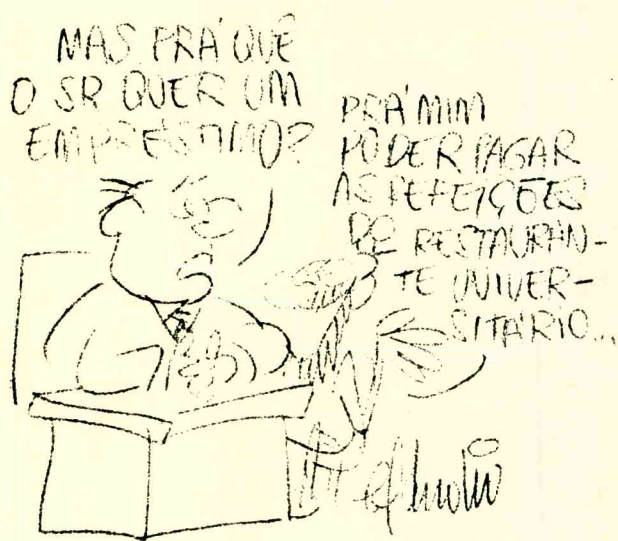 MAS PRÁ QUÊ
O SR QUER UM
EMPRÉSTIMO?
PRÁ MIM
PODER PAGAR
AS REFEIÇÕES
DE RESTAURAN-
TE UNIVER-
SITÁRIO...